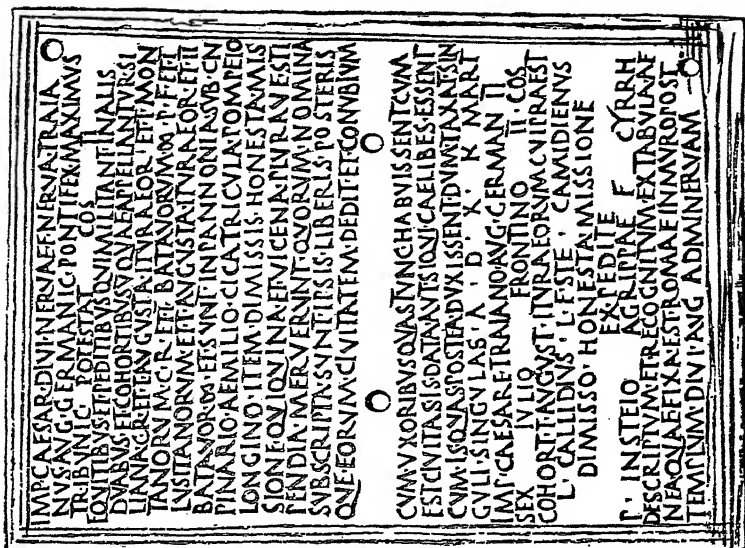 IMP·CAESAR·DIVI·NERVAE·F·NERVA·TRAIA
NVS·AVG·GERMANIC·PONTIFEX·MAXIMVS
TRIBVNIC POTESTAT COS II
EQVITIBVS·ET·PEDITIBVS·QVI·MILITANT·IN·ALIS
DVABVS·ET·COHORTIBVS·V·QVAE·APPELLANTVR·SI
LIANA·C·R·ET·I·AVGVSTA·ITVRAEOR·ET·I·MON
TANORVM·C·R·ET·I·BATAVORVM·∞·P·F·ET·I
LVSITANORVM·ET·I·AVGVSTA·ITVRAEOR·ET·II
BATAVOR·∞·ET·SVNT·IN·PANNONIA·SVB·CN
PINARIO·AEMILIO·CICATRICVLA·POMPEIO
LONGINO·ITEM·DIMISSIS·HONESTA·MIS
SIONE·QVI·QVINA·ET·VICENA·PLVRAVE·STI
PENDIA·MERVERVNT·QVORVM·NOMINA
SVBSCRIPTA·SVNT·IPSIS·LIBERIS·POSTERIS
QVE·EORVM·CIVITATEM·DEDIT·ET·CONVBIVM
CVM·VXORIBVS·QVAS·TVNC·HABVISSENT·CVM
EST·CIVITAS·IS·DATA·AVT·SI·QVI·CAELIBES·ESSENT
CVM·IS·QVAS·POSTEA·DVXISSENT·DVM·TAXAT·SIN
GVLI·SINGVLAS·A·D·X·K·MART
IMP·CAESARE·TRAIANO·AVG·GERMAN·II
SEX IVLIO FRONTINO II COS
COHORT·I·AVGVST·ITVRAEORVM·CVI·PRAEST
L·CALLIDIVS·L·F·STE·CAMIDIENVS
DIMISSO·HONESTA·MISSIONE
EX PEDITE
P·INSTEIO AGRIPPAE F CYRRH
DESCRIPTVM·ET·RECOGNITVM·EX·TABVLA·AE
NEA·QVAE·FIXA·EST·ROMAE·IN·MVRO·POST
TEMPLVM·DIVI·AVG AD·MINERVAM